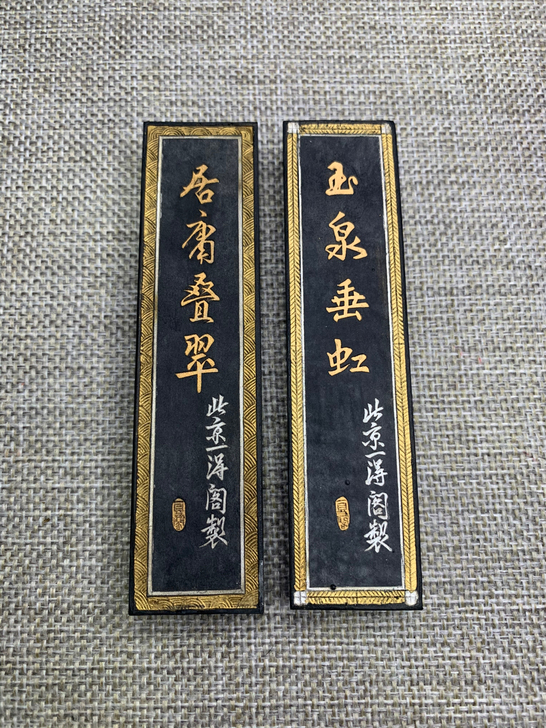 居庸叠翠
北京一得阁製
玉泉垂虹
北京一得阁製